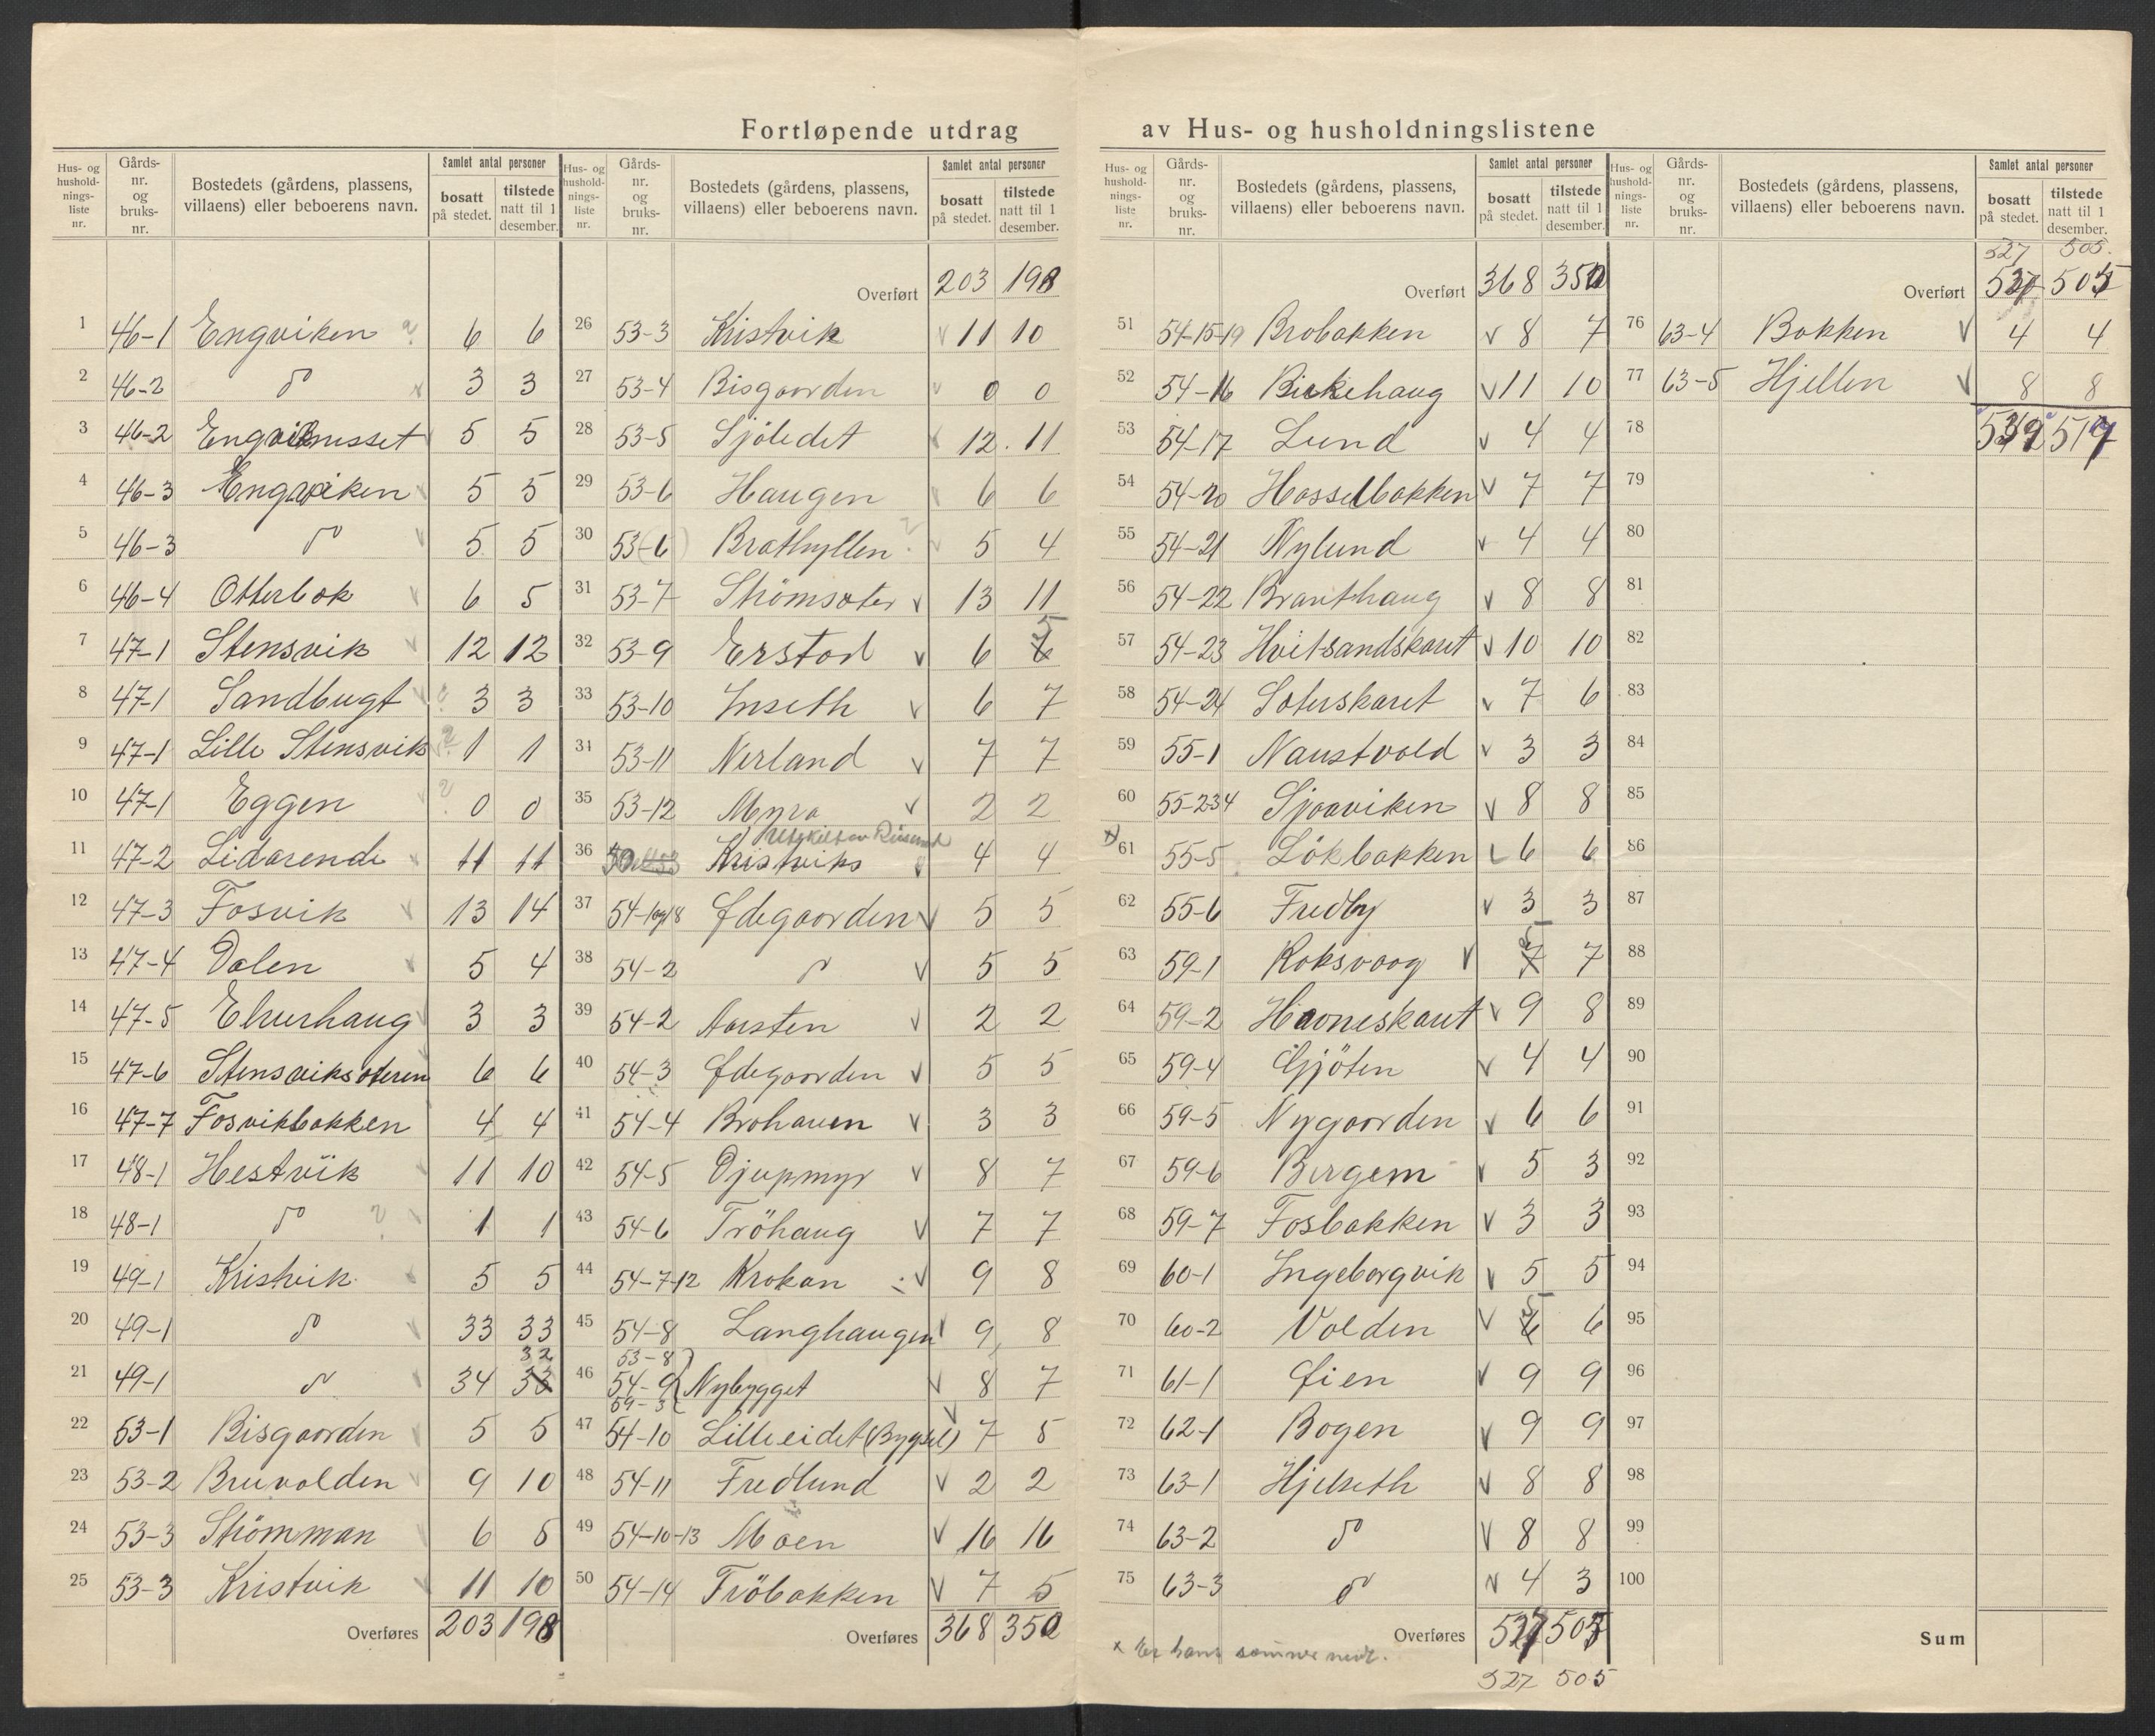 Fortløpende utdrag av Hus- og husholdningslistene
Hus- og hushold-nings-liste nr. Gårds-nr. og bruks-nr. Bostedets (gårdens, plassens, villaens) eller beboerens navn. Samlet antal personer bosatt på stedet. tilstede natt til 1 desember.
1 46-1 Engviken 6 6
2 46-2 do 3 3
3 46-2 Engviknesset 5 5
4 46-3 Engviken 5 5
5 46-3 do 5 5
6 46-4 Otterbak 6 5
7 47-1 Stensvik 12 12
8 47-1 Sandbugt 3 3
9 47-1 Lille Stensvik 1 1
10 47-1 Eggen 0 0
11 47-2 Lidarende 11 11
12 47-3 Fosvik 13 14
13 47-4 Dalen 5 4
14 47-5 Elverhaug 3 3
15 47-6 Stensviksæteren 6 6
16 47-7 Fosvikbakken 4 4
17 48-1 Hestvik 11 10
18 48-1 do 1 1
19 49-1 Kristvik 5 5
20 49-1 do 33 33
21 49-1 do 34 32
22 53-1 Bisgaarden 5 5
23 53-2 Bruvolden 9 10
24 53-3 Strömman 6 5
25 53-3 Kristvik 11 10
Overføres 203 198
Hus- og hushold-nings-liste nr. Gårds-nr. og bruks-nr. Bostedets (gårdens, plassens, villaens) eller beboerens navn. Samlet antal personer bosatt på stedet. tilstede natt til 1 desember.
Overført 203 198
26 53-3 Kristvik 11 10
27 53-4 Bisgaarden 0 0
28 53-5 Sjöledet 12 11
29 53-6 Haugen 6 6
30 53(6) Brathyllen 5 4
31 53-7 Strömsæter 13 11
32 53-9 Erstad 6 5
33 53-10 Inseth 6 7
34 53-11 Nerland 7 7
35 53-12 Myra 2 2
36 Kristviks 4 4
37 54-1og18 Ødegaarden 5 5
38 54-2 do 5 5
39 54-2 Aasten 2 2
40 54-3 Ødegaarden 5 5
41 54-4 Brohaven 3 3
42 54-5 Djupmyr 8 7
43 54-6 Tröhaug 7 7
44 54-7-12 Krokan 9 8
45 54-8 Langhaugen 9 8
53-8
46 54-9 Nybygget 8 7
59-3
47 54-10 Lilleeidet (Bygsel) 7 5
48 54-11 Fredlund 2 2
49 54-10-13 Moen 16 16
50 54-14 Tröbakken 7 5
Overføres 368 350
Hus- og hushold-nings-liste nr. Gårds-nr. og bruks-nr. Bostedets (gårdens, plassens, villaens) eller beboerens navn. Samlet antal personer bosatt på stedet. tilstede natt til 1 desember.
Overført 368 350
51 54-15-19 Brobakken 8 7
52 54-16 Birkehaug 11 10
53 54-17 Lund 4 4
54 54-20 Hasselbakken 7 7
55 54-21 Nylund 4 4
56 54-22 Branthaug 8 8
57 54-23 Hvitsandskaret 10 10
58 54-24 Sæterskaret 7 6
59 55-1 Naustvold 3 3
60 55-234 Sjøaviken 8 8
x) 61 55-5 Lökbakken 6 6
62 55-6 Fredby 3 3
63 59-1 Roksvaag 5 7
64 59-2 Havneskaret 9 8
65 59-4 Gjöten 4 4
66 59-5 Nygaarden 6 6
67 59-6 Bergem 5 3
68 59-7 Fosbakken 3 3
69 60-1 Ingeborgvik 5 5
70 60-2 Volden 5 6
71 61-1 Øien 9 9
72 62-1 Bogen 9 9
73 63-1 Hjelseth 8 8
74 63-2 do 8 8
75 63-3 do 4 3
Overføres 527 505
527 505
Hus- og hushold-nings-liste nr. Gårds-nr. og bruks-nr. Bostedets (gårdens, plassens, villaens) eller beboerens navn. Samlet antal personer bosatt på stedet. tilstede natt til 1 desember.
527 505.
Overført 527 505
76 63-4 Bakken 4 4
77 63-5 Hjellen 8 8
78 539 517
79
80
81
82
83
84
85
86
87
88
89
90
91
92
93
94
95
96
97
98
99
100
Sum